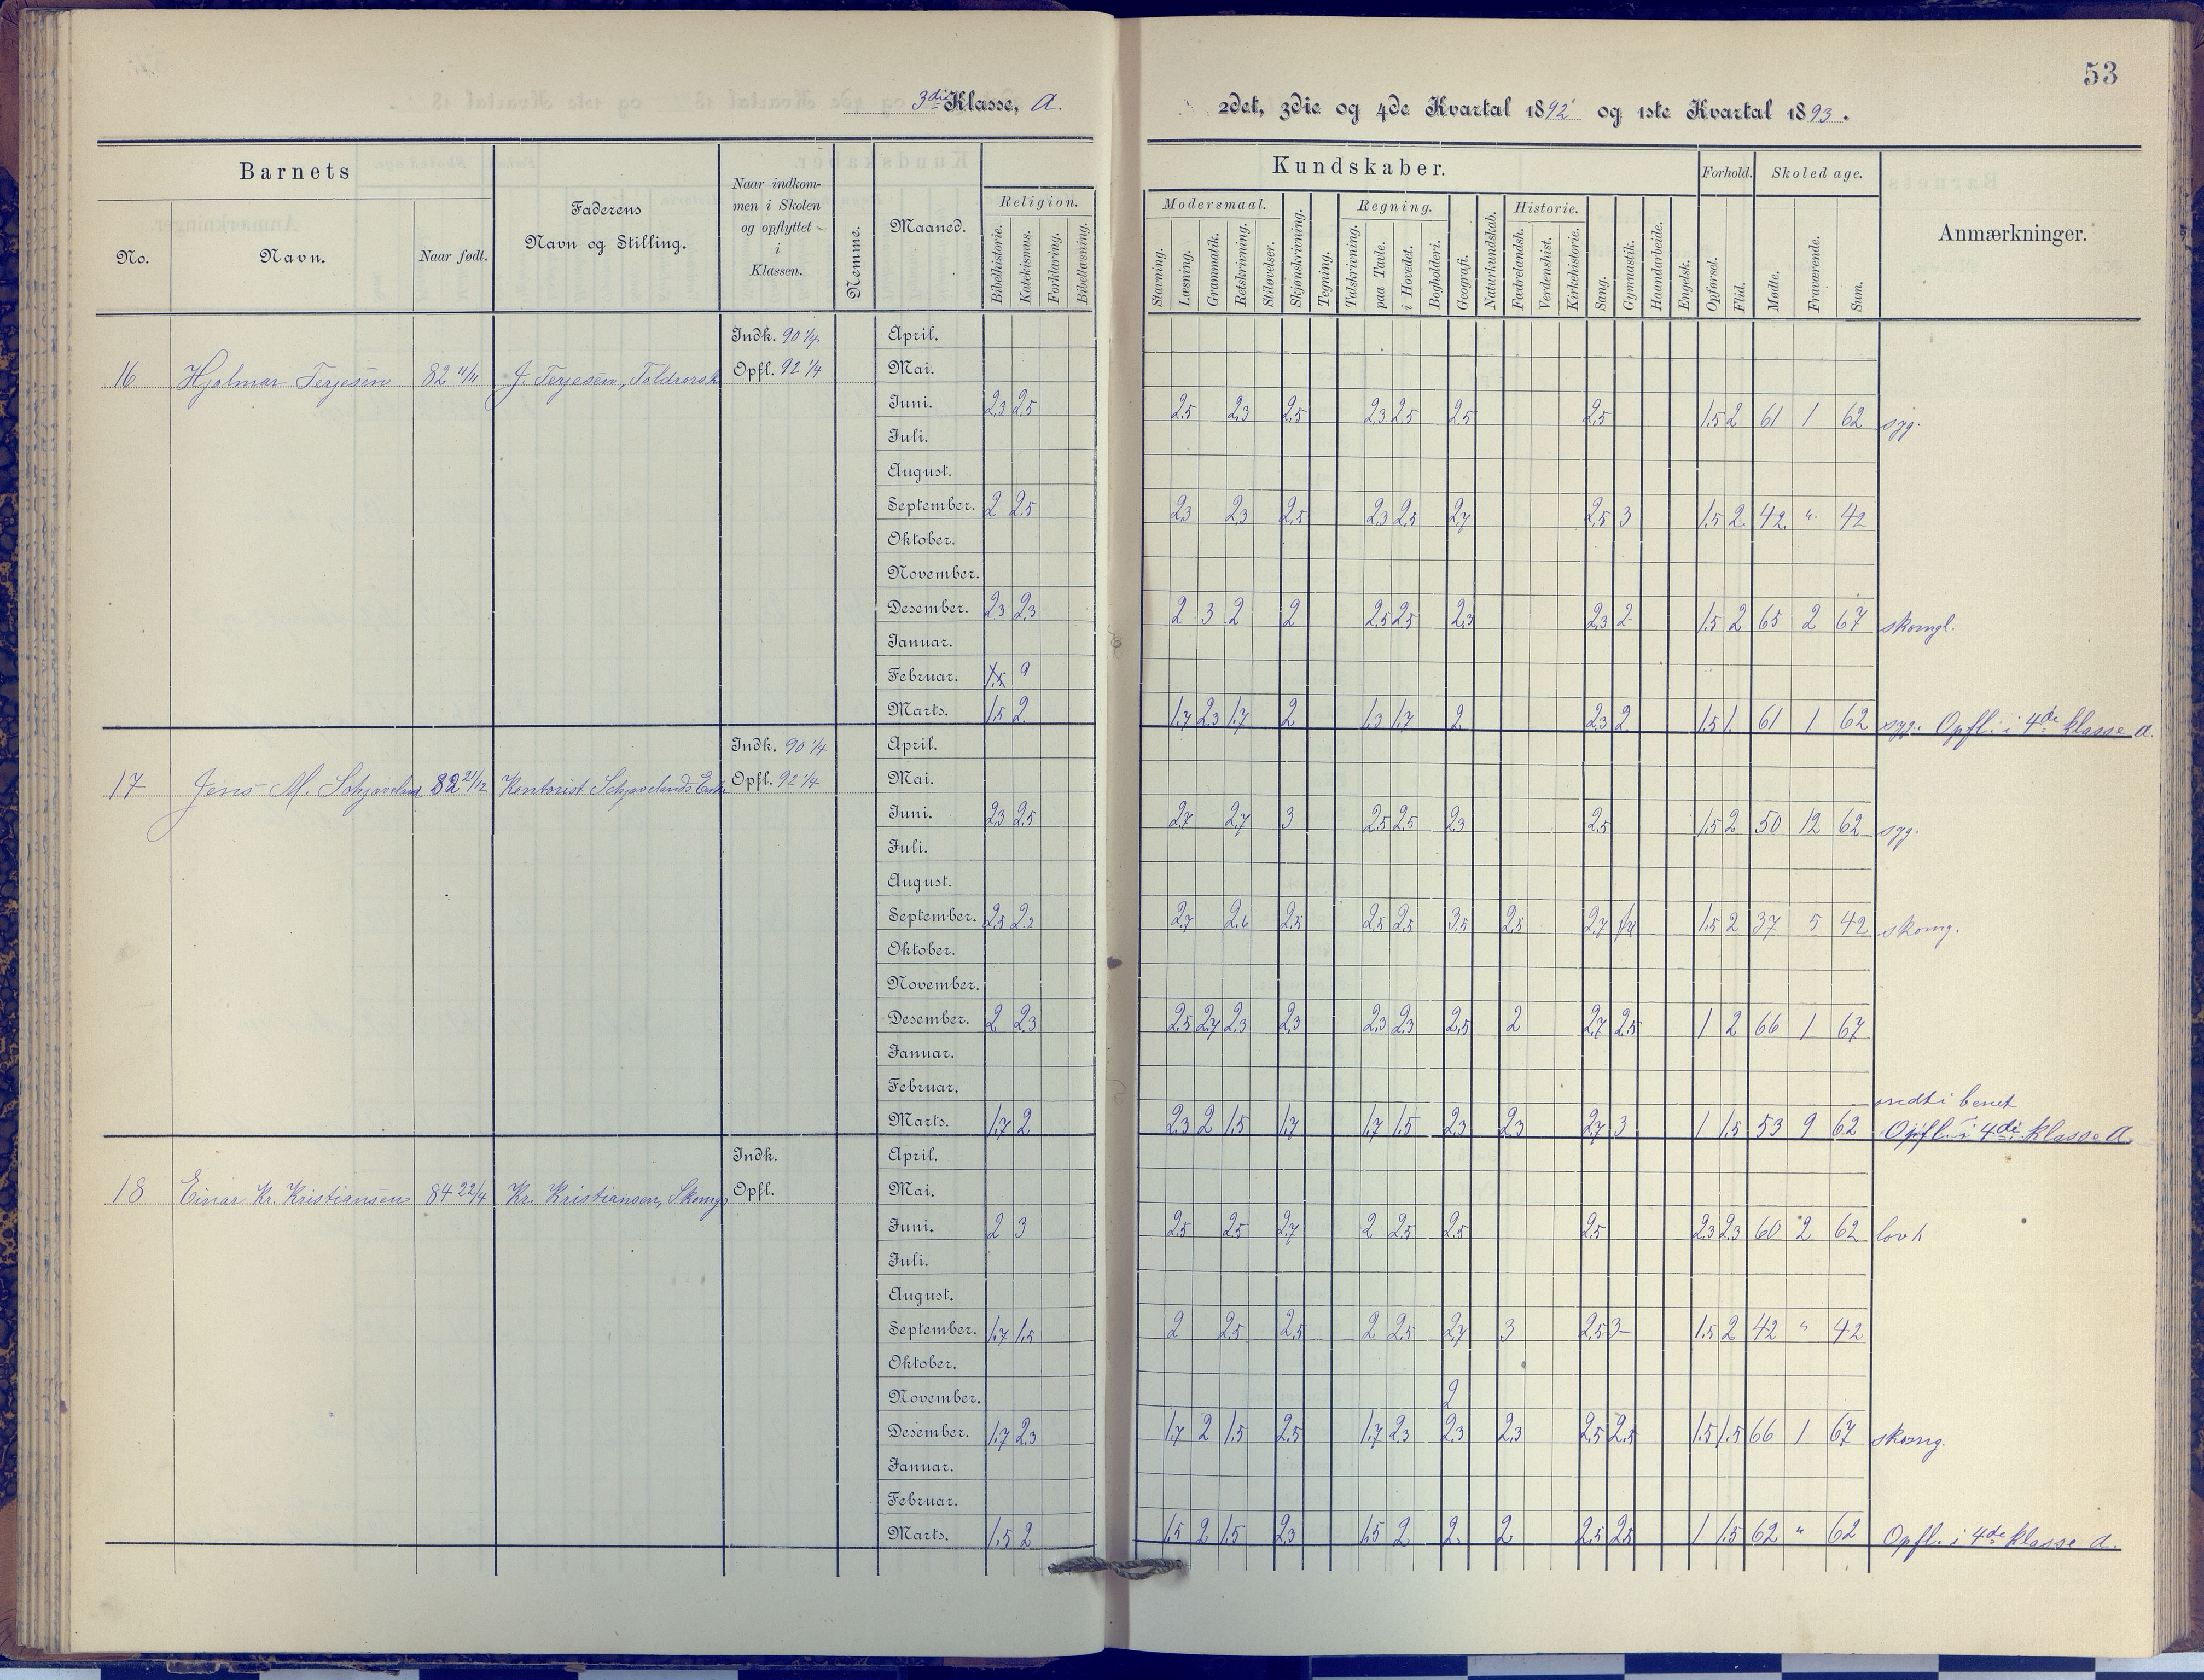 53
3die Klasse, A.
2det, 3die og 4de Kvartal 1892 og 1ste Kvartal 1893.
Barnets
No.
Navn.
Naar født.
Faderens
Navn og Stilling.
Naar indkom-
men i Skolen
og opflyttet
i
Klassen.
Nemme.
Maaned.
Kundskaber.
Religion.
Bibelhistorie.
Katekismus.
Forklaring.
Bibellæsning.
Modersmaal.
Stavning.
Læsning.
Grammatik.
Retskrivning.
Stiløvelser.
Skjønskrivning.
Tegning.
Regning.
Talskrivning.
paa Tavle.
i Hovedet.
Bogholderi.
Geografi.
Naturkundskab.
Historie.
Fædrelandsh.
Verdenshist.
Kirkehistorie.
Sang.
Gymnastik.
Haandarbeide.
Engelsk.
Forhold.
Opførsel.
Flid.
Skoledage.
Mødte.
Fraværende.
Sum.
Anmærkninger.
16 Hjalmar Terjesen 82 11/11 J. Terjesen, Indk. 90 1/4
Opfl. 92 1/4
April.
Mai.
Juni. 2.3 2.5 2.5 2.3 2.5 2.3 2.5 2.5 2.5 1.5 2 61 1 62 syg.
Juli.
August.
September. 2 2.5 2.3 2.3 2.5 2.3 2.5 2.7 2.5 3 1.5 2 42 " 42
Oktober.
November.
Desember. 2.3 2.3 2 3 2 2 2.5 2.5 2.3 2.3 2 1.5 2 65 2 67 skomgl.
Januar.
Februar.
Marts. 1.5 2 1.7 2.3 1.7 2 1.3 1.7 2 2.3 2 1.5 1. 61 1 62 syg. Opfl. i 4de klasse a.
17 Jens M. Schjaveland 82 21/12 Kontorist Schjavelands Enke Indk. 90 1/4
Opfl. 92 1/4
April.
Mai.
Juni. 2.3 2.5 2.7 2.7 3 2.5 2.5 2.3 2.5 1.5 2 50 12 62 syg.
Juli.
August.
September. 2.5 2.2 2.7 2.5 2.5 2.5 3.5 2.5 2.7 1.5 2 37 5 42 skomg.
Oktober.
November.
Desember. 2 2.3 2.5 2.7 2.3 2.3 2.3 2.3 2.5 2 2.7 2.5 1 2 66 1 67
Januar.
Februar.
ondt i benet
Marts. 1.7 2 2.3 2 1.5 1.7 1.7 1.5 2.3 2.3 2.7 3 1 1.5 53 9 62 Opfl. i 4de klasse A.
18 Einar Kr. Kristiansen 84 22/4 Kr. Kristiansen, Skomg. Indk.
Opfl.
April.
Mai.
Juni. 2 3 2.5 2.5 2.7 2 2.5 2.5 2.5 2.3 2.3 60 2 62 lov
Juli.
August.
September. 1.7 1.5 2 2.5 2.5 2 2.5 2.7 3 2.5 3- 1.5 2 42 " 42
Oktober.
November. 2
Desember. 1.7 2.3 1.7 2 1.5 2.5 1.7 2.3 2.3 2.3 2.5 2.5 1.5 1.5 66 1 67 skomg.
Januar.
Februar.
Marts. 1.5 2 1.5 2 1.5 2.3 1.5 2 2 2 2.5 2.5 1 1.5 62 " 62 Opfl. i 4de klasse a.